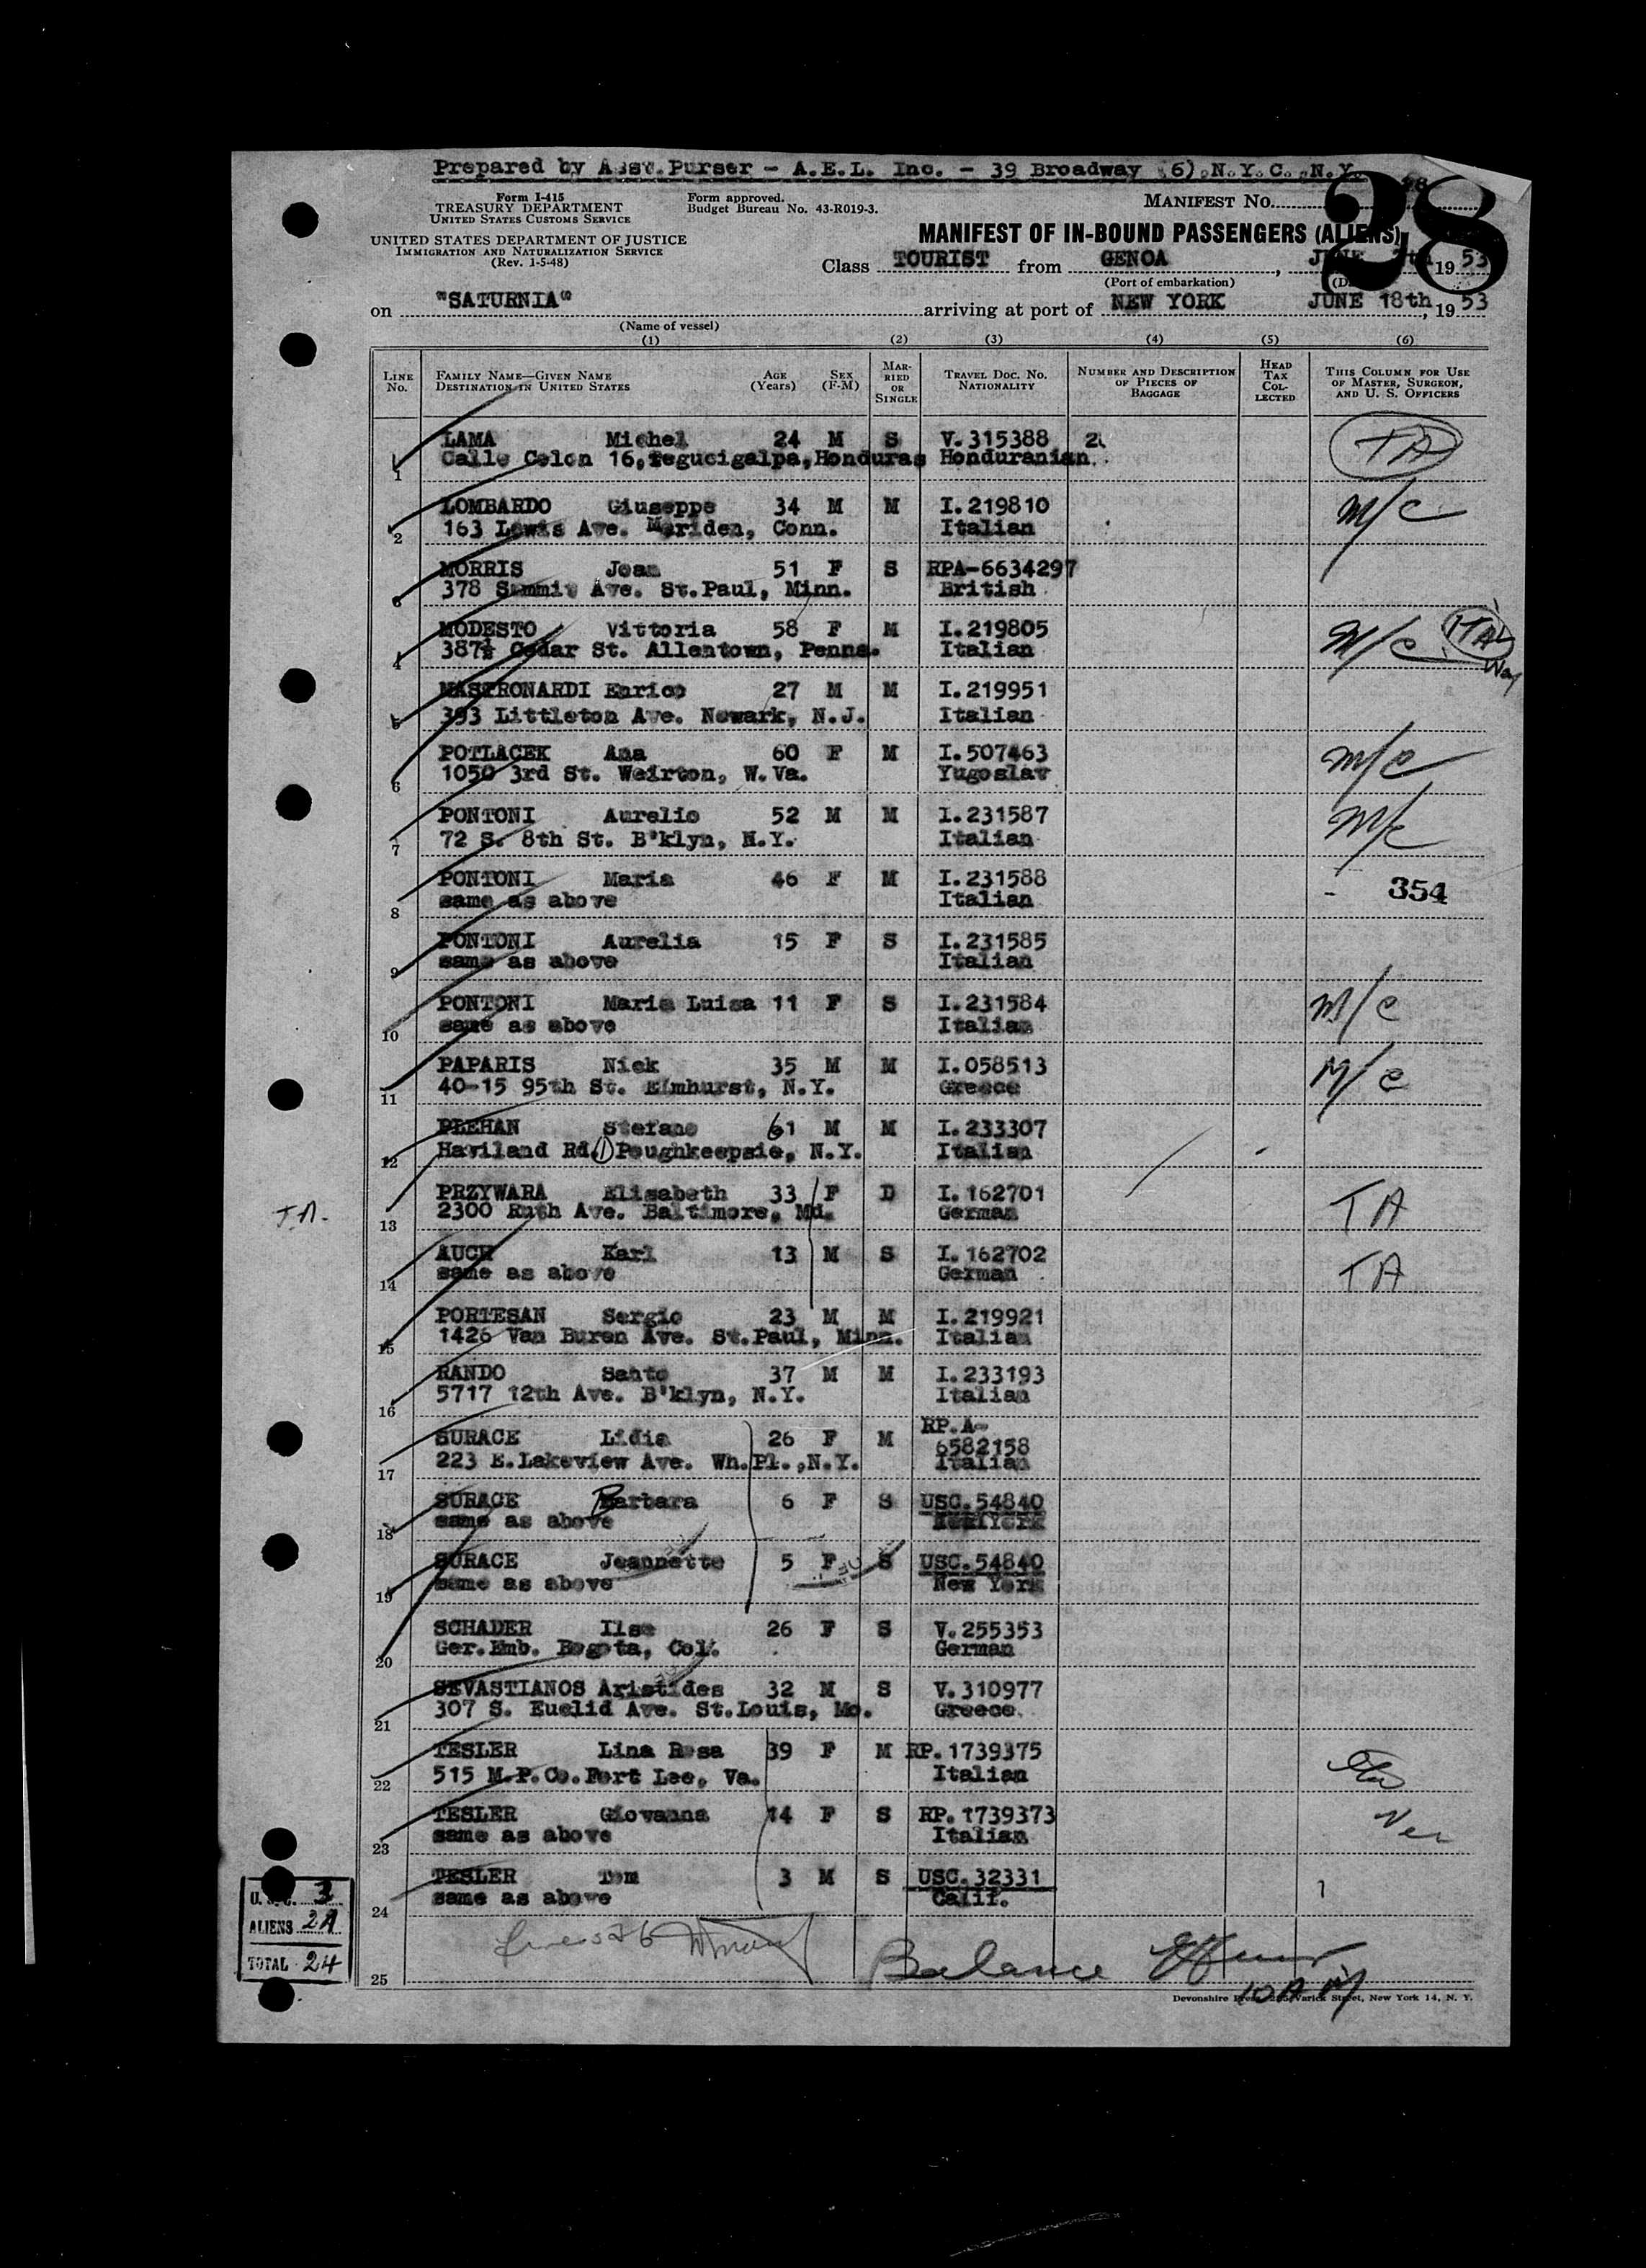 Prepared by Asst. Purser - A.E.L. Inc. - 39 Broadway (6), N.Y.C., N.Y.
28
Form I-415
TREASURY DEPARTMENT
UNITED STATES CUSTOMS SERVICE
Form approved.
Budget Bureau No. 43-R019-3.
MANIFEST No. 28
UNITED STATES DEPARTMENT OF JUSTICE
IMMIGRATION AND NATURALIZATION SERVICE
(Rev. 1-5-48)
MANIFEST OF IN-BOUND PASSENGERS (ALIENS)
Class TOURIST from GENOA, JUNE 7th 1953
(Port of embarkation)
on "SATURNIA" arriving at port of NEW YORK JUNE 18th, 1953
(Name of vessel)
(1) (2) (3) (4) (5) (6)
LINE No. FAMILY NAME—GIVEN NAME DESTINATION IN UNITED STATES AGE (Years) SEX (F-M) MARRIED OR SINGLE TRAVEL DOC. NO. NATIONALITY NUMBER AND DESCRIPTION OF PIECES OF BAGGAGE HEAD TAX COLLECTED THIS COLUMN FOR USE OF MASTER, SURGEON, AND U. S. OFFICERS
1 LAMA Michel 24 M S V.315388 2 TA
Calle Colon 16, Tegucigalpa, Honduras Honduranian.
2 LOMBARDO Giuseppe 34 M M I.219810 M/C
163 Lewis Ave. Meriden, Conn. Italian
3 MORRIS Joan 51 F S RPA-6634297
378 Summit Ave. St.Paul, Minn. British
4 MODESTO Vittoria 58 F M I.219805 M/C
387½ Cedar St. Allentown, Penna. Italian
5 MASTRONARDI Enrico 27 M M I.219951
393 Littleton Ave. Newark, N.J. Italian
6 POTLACEK Ana 60 F M I.507463 M/C
1050 3rd St. Weirton, W.Va. Yugoslav
7 PONTONI Aurelio 52 M M I.231587 M/C
72 S. 8th St. B'klyn, N.Y. Italian
8 PONTONI Maria 46 F M I.231588 - 354
same as above Italian
9 PONTONI Aurelia 15 F S I.231585
same as above Italian
10 PONTONI Maria Luisa 11 F S I.231584 M/C
same as above Italian
11 PAPARIS Nick 35 M M I.058513 M/C
40-15 95th St. Elmhurst, N.Y. Greece
12 PLEHAN Stefano 61 M M I.233307
Haviland Rd. 1 Poughkeepsie, N.Y. Italian
T.A.
13 PRZYWARA Elisabeth 33 F D I.162701 TA
2300 Ruth Ave. Baltimore, Md. German
14 AUCH Karl 13 M S I.162702 TA
same as above German
15 PORTESAN Sergio 23 M M I.219921
1426 Van Buren Ave. St.Paul, Minn. Italian
16 RANDO Santo 37 M M I.233193
5717 12th Ave. B'klyn, N.Y. Italian
17 SURACE Lidia 26 F M RP.A-6582158
223 E.Lakeview Ave. Wh.Pl., N.Y. Italian
18 SURACE Barbara 6 F S USC.54840
same as above New York
19 SURACE Jeannette 5 F S USC.54840
same as above New York
20 SCHADER Ilse 26 F S V.255353
Ger.Emb. Bogota, Col. German
21 SEVASTIANOS Aristides 32 M S V.310977
307 S. Euclid Ave. St.Louis, Mo. Greece
22 TESLER Lina Rosa 39 F M RP.1739375
515 M.P.Co.Fort Lee, Va. Italian
23 TESLER Giovanna 14 F S RP.1739373
same as above Italian
24 TESLER Tom 3 M S USC.32331
same as above Calif.
25 Balance
10 AM
U.S.C. 3
ALIENS 21
TOTAL 24
Devonshire Press, Varick Street, New York 14, N. Y.